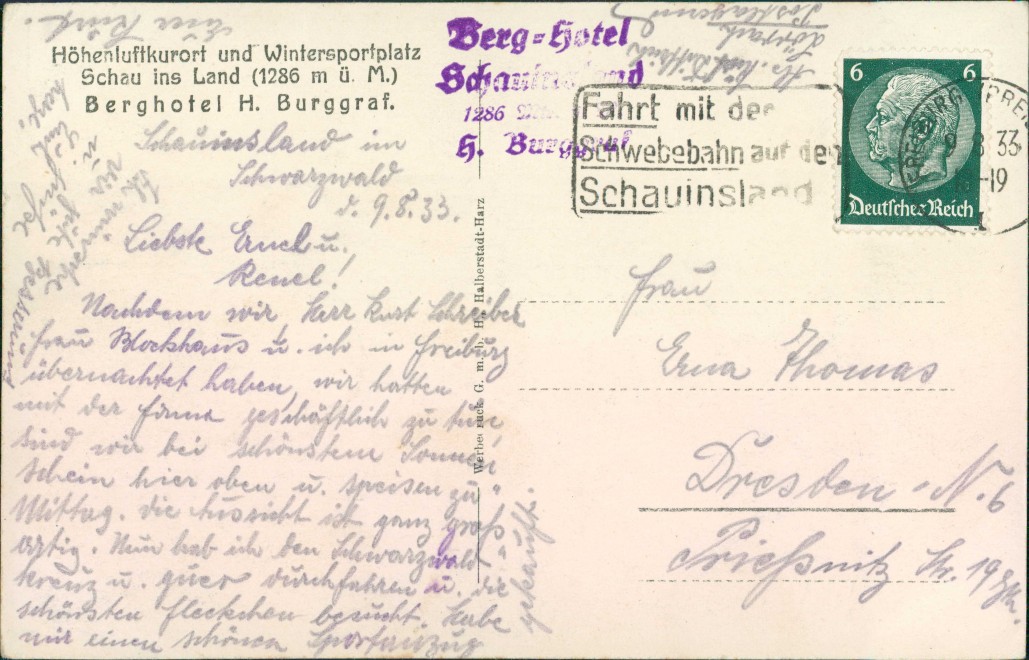 Höhenluftkurort und Wintersportplatz
Schau ins Land (1286 m ü. M.)
Berghotel H. Burggraf.
Berg-Hotel
Schauinsland
1286
H. Burggraf
Fahrt mit der
Schwebebahn auf den
Schauinsland
6 6
Deutsches Reich
33
-19
Schauinsland im
Schwarzwald
d. 9.8.33.
Liebste Ernel u.
Renel!
Nachdem wir Herr Kurt Schreiber
Frau Blockhaus u. ich in Freiburg
übernachtet haben, wir hatten
mit der Firma geschäftlich zu tun
sind wir bei schönstem Sonnen
schein hier oben u. speisen zu
Mittag. Die Aussicht ist ganz groß
artig. Nun hab ich den Schwarzwald
kreuz u. quer durchfahren u. die
schönsten Fleckchen besucht. Habe
mir einen schönen Sportanzug
gekauft.
Werbedruck G. m. b. H. Halberstadt-Harz
Frau
Erna Thomas
Dresden-N. 6
Prießnitz Str. 19